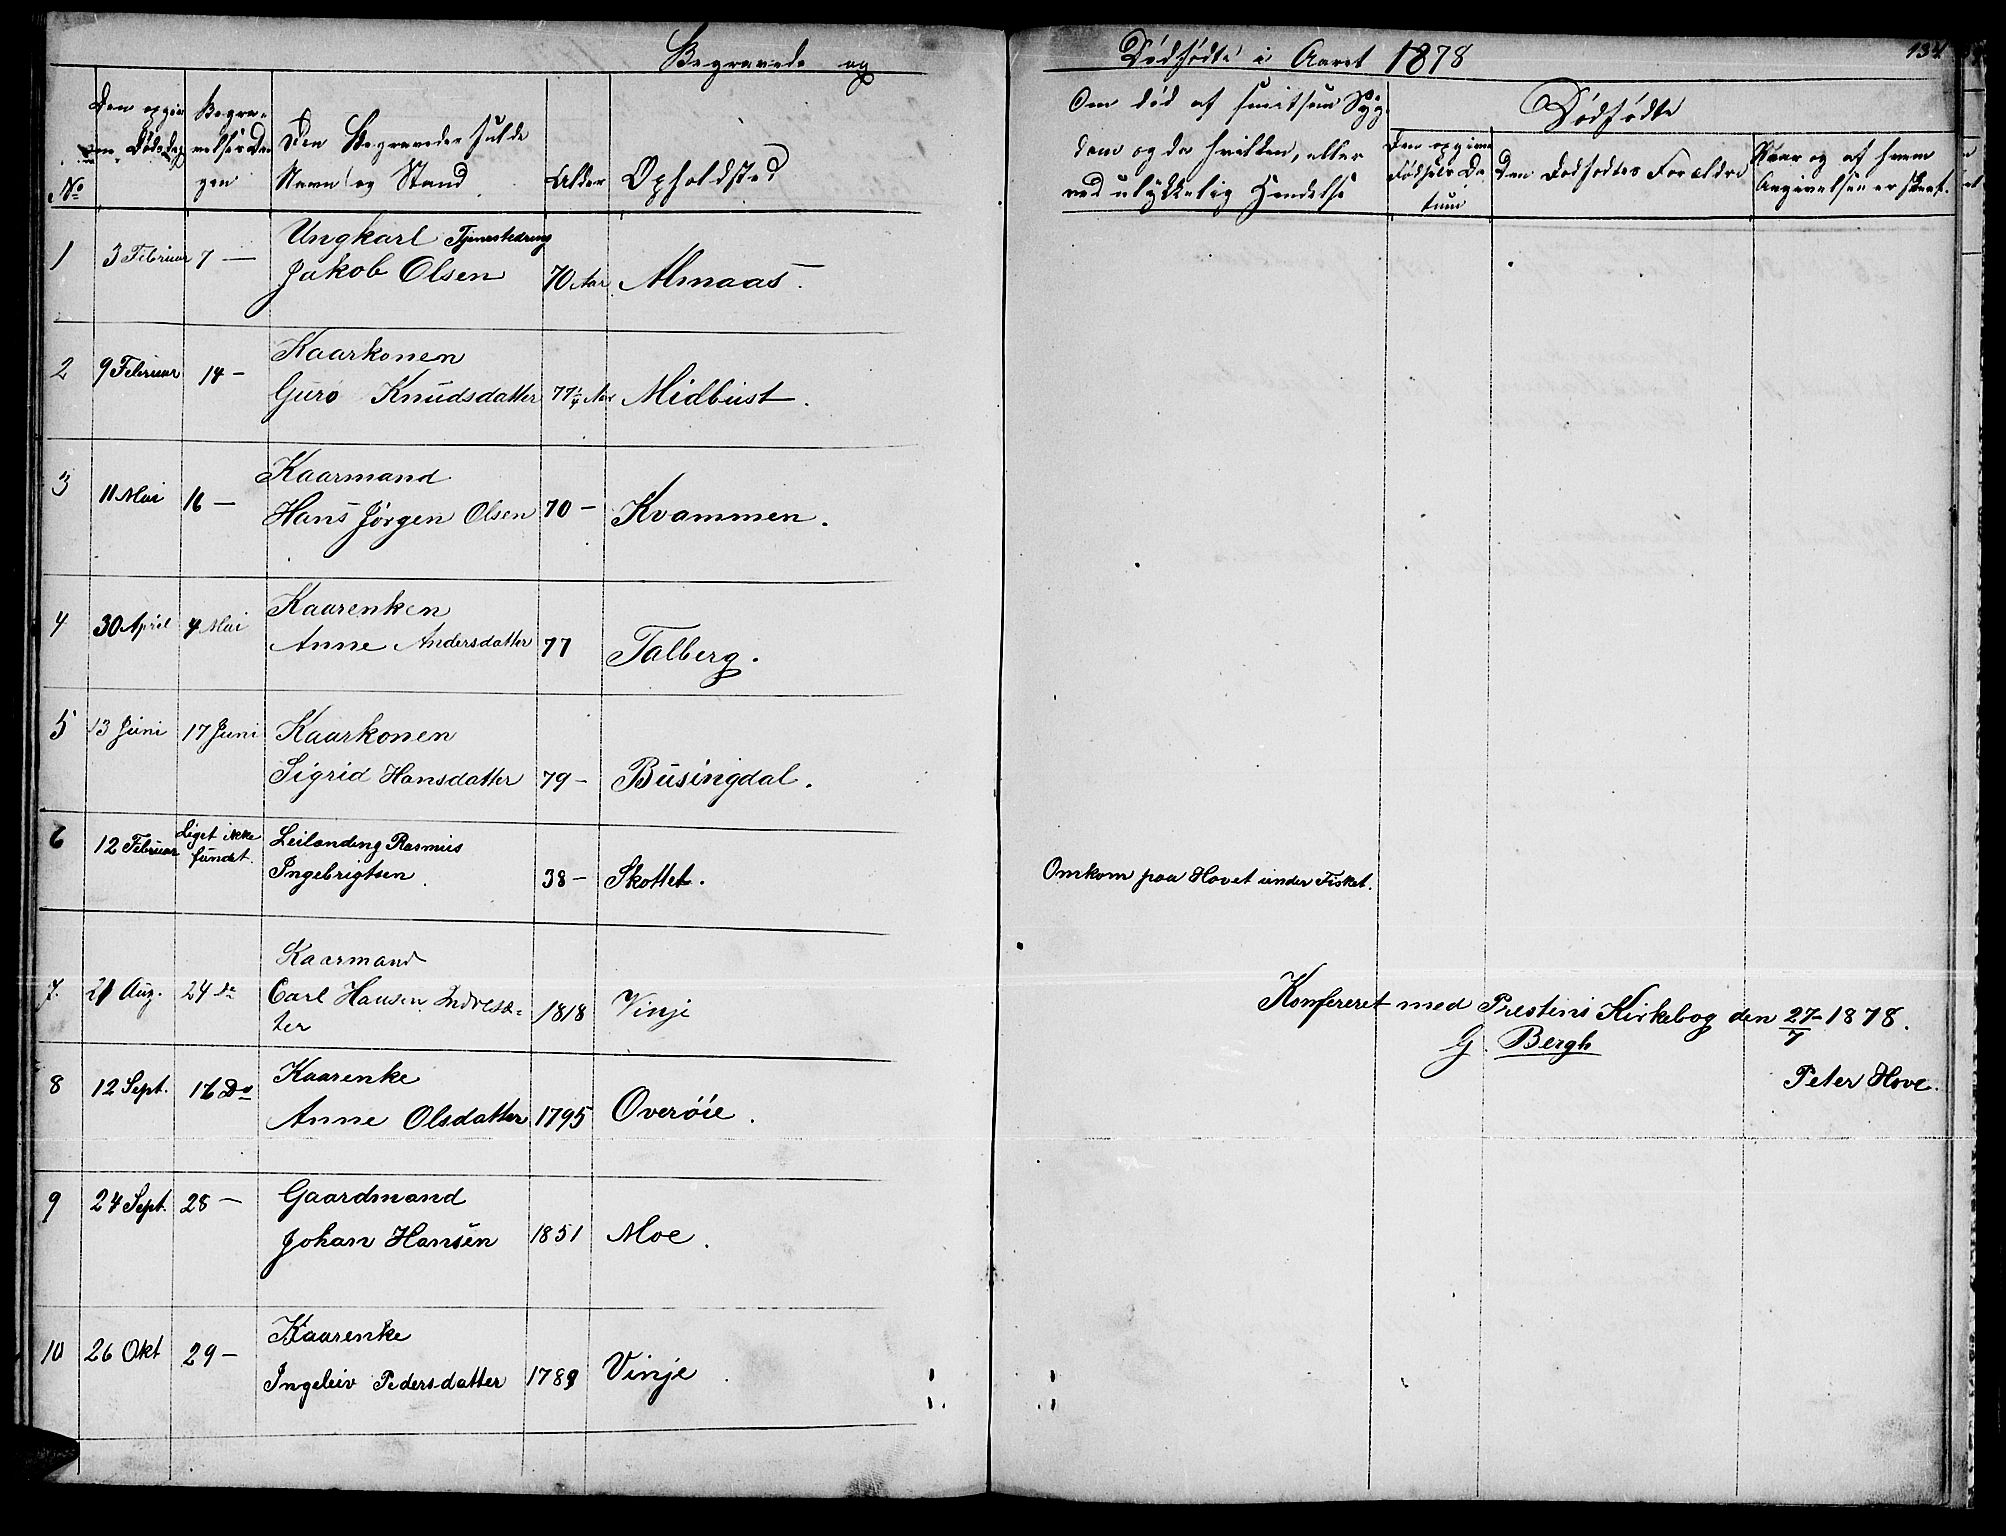 Begravede og
Dødfødte i Aaret 1878
134
No
Den opgivne Dødsdag
Begravelses Dagen
Den Begravedes fulde
Navn og Stand
Alder
Opholdsted
Om død af smitsom Syg
dom og da hvilken, eller
ved ulykkelig Hendelse
Dødfødte
Den opgivne
Fødsels Da
tum
Den Dødfødtes Forældre
Naar og af hvem
Angivelsen er skeet.
1 3 Februar 7 — Ungkarl Tjenestedreng
Jakob Olsen 70 Aar Almaas.
2 9 Februar 14 – Kaarkonen
Guro Knudsdatter 77 1/4 Aar Midbust.
3 11 Mai 16 — Kaarmand
Hans Jørgen Olsen 70 – Kvammen.
4 30 April 4 Mai Kaarenken
Anne Andersdatter 77 Talberg.
5 13 Juni 17 Juni Kaarkonen
Sigrid Hansdatter 79 – Busingdal.
6 12 Februar Liget ikke
fundet. Leilending Rasmus
Ingebrigtsen 38 – Skottet.
Omkom paa Havet under Fisket.
7. 21 Aug. 24 do Kaarmand
Carl Hansen Indresæ-
ter 1818 Vinje
Konfereret med Prestens Kirkebog den 27/7 1878.
G. Bergh
Peter Hove.
8 12 Sept. 16 Do Kaarenke
Anne Olsdatter 1795 Overøie.
9 24 Sept. 28 — Gaardmand
Johan Hansen 1851 Moe.
10 26 Okt 29 – Kaarenke
Ingeleiv Pedersdatter 1789 Vinje.